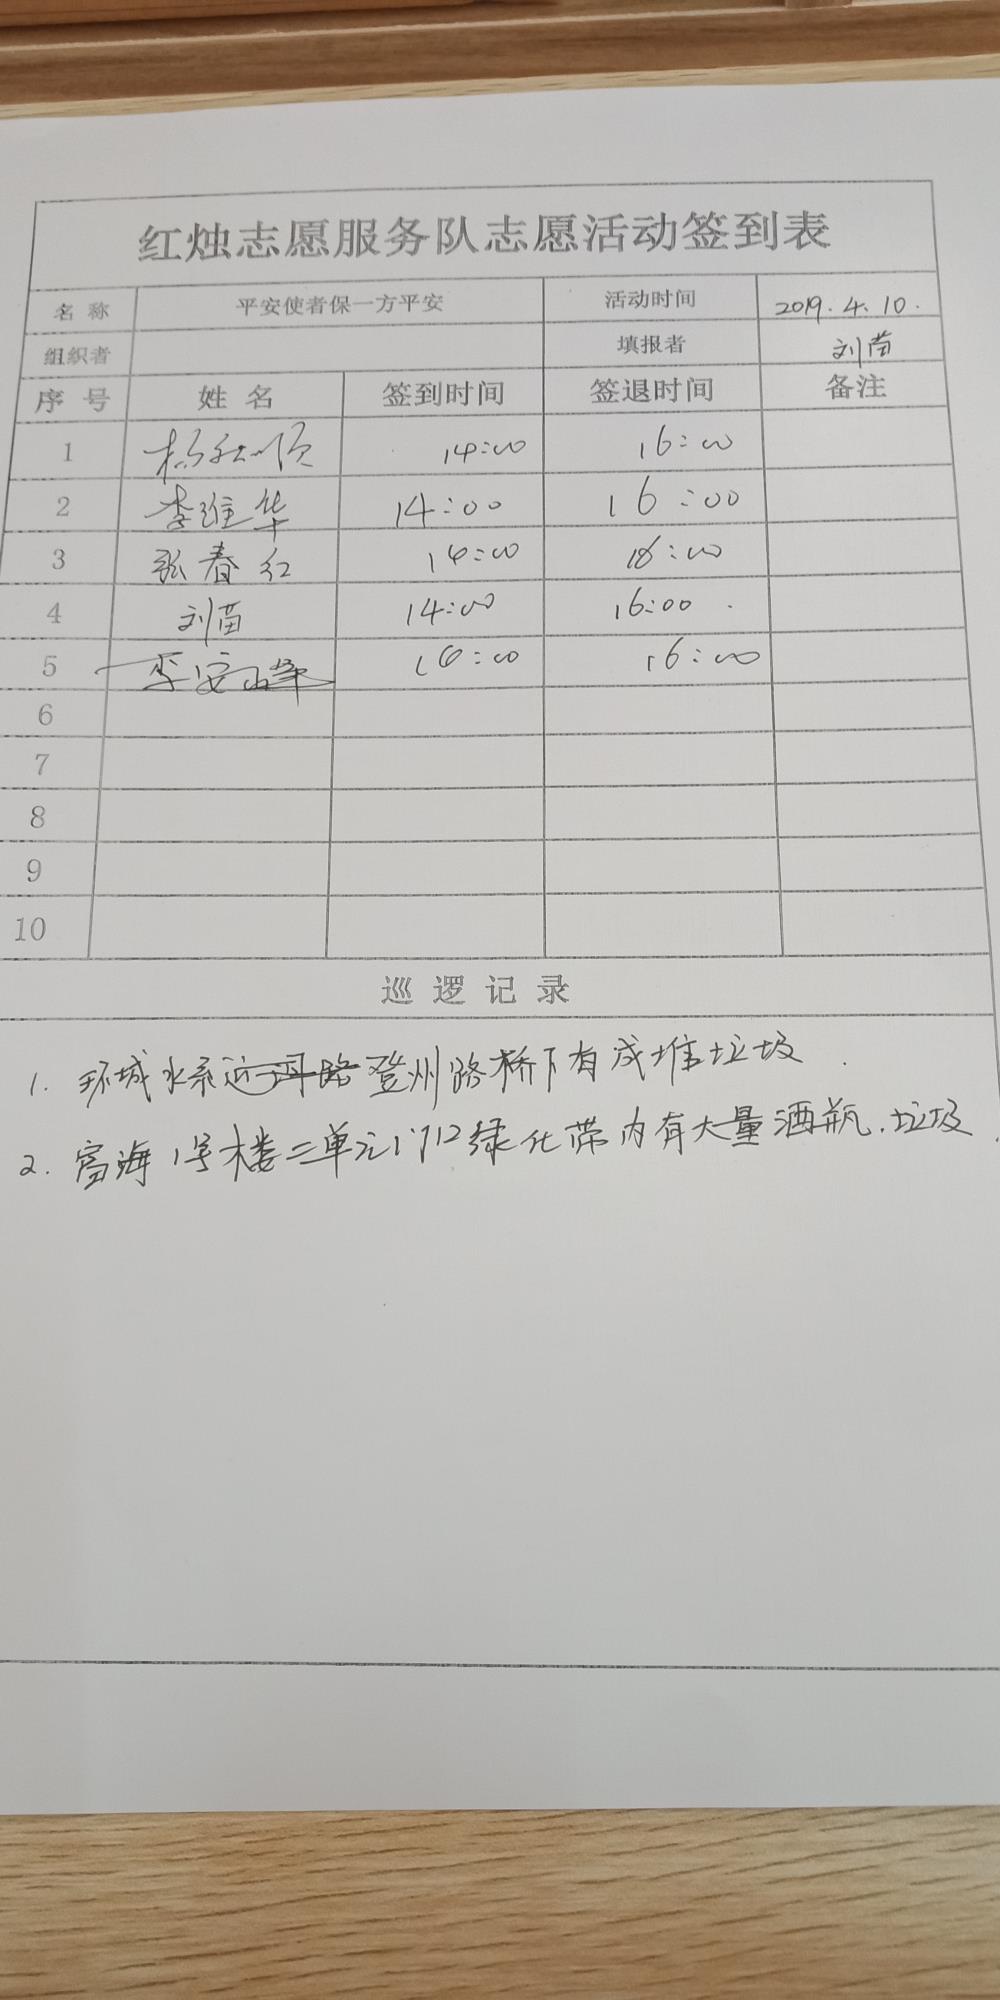 红烛志愿服务队志愿活动签到表
名称 平安使者保一方平安 活动时间 2019.4.10.
组织者 填报者 刘苗
序号 姓名 签到时间 签退时间 备注
1 14:00 16:00
2 李维华 14:00 16:00
3 张春红 14:00 16:00
4 刘苗 14:00 16:00
5 李安峰 16:00
6
7
8
9
10
巡逻记录
1. 环城水系 登州路桥下有成堆垃圾
2. 富海1号楼二单元门口绿化带内有大量酒瓶.垃圾